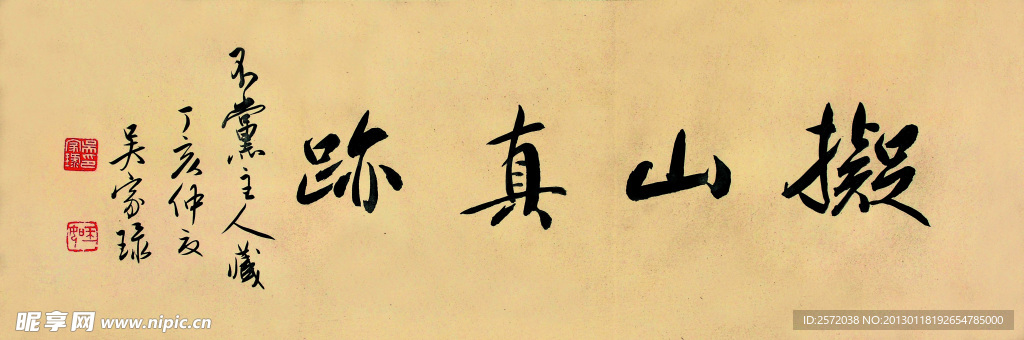 擬山真跡
不黨主人藏
丁亥仲夏
吴家琭
昵享网 www.nipic.cn
ID:2572038 NO:20130118192654785000